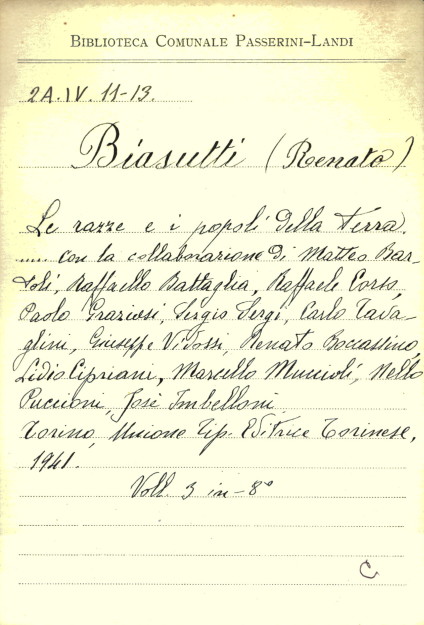 BIBLIOTECA COMUNALE PASSERINI-LANDI
2A.IV. 11-13.
Biasutti (Renato)
Le razze e i popoli della Terra.
..... con la collaborazione di Matteo Bar-
toli, Raffaello Battaglia, Raffaele Corso,
Paolo Graziosi, Sergio Sergi, Carlo Tava-
glini, Giuseppe Vidossi, Renato Boccassino,
Lidio Cipriani, Marcello Muccioli, Nello
Puccioni, Josè Imbelloni.
Torino, Unione Tip. Editrice Torinese,
1941.
Voll. 3 in-8°
C